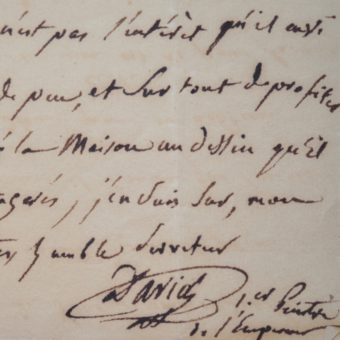 n'est pas l'intérêt qu'il
de peu, et sur tout de profiter
la Maison un dessin qu'il
j'en suis sur, mon
humble serviteur
David
1.er Peintre
de l'Empereur